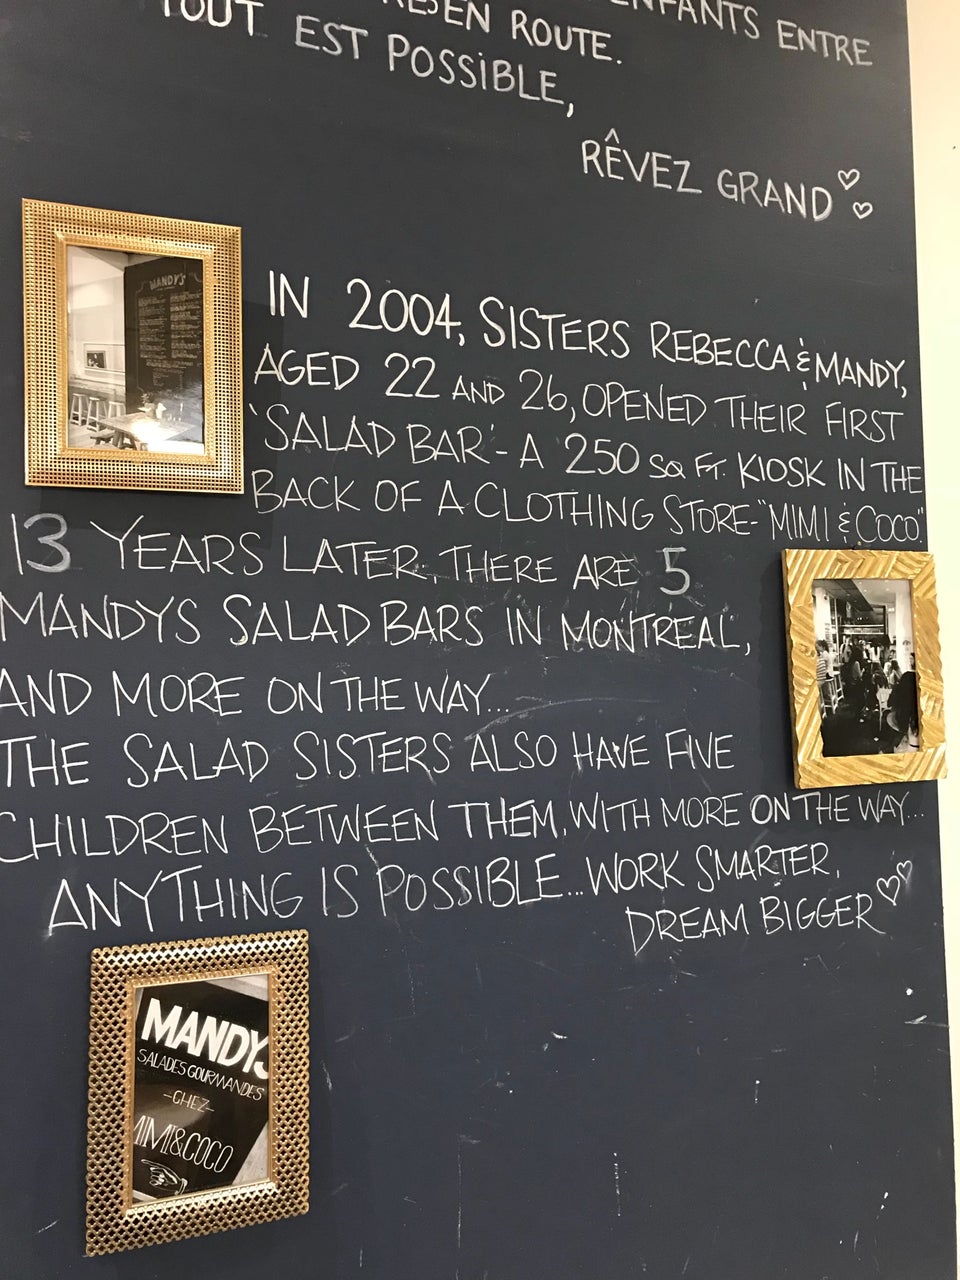 ENFANTS ENTRE
EN ROUTE.
TOUT EST POSSIBLE,
RÊVEZ GRAND
MANDY'S
IN 2004, SISTERS REBECCA & MANDY,
AGED 22 AND 26, OPENED THEIR FIRST
'SALAD BAR' - A 250 SQ FT. KIOSK IN THE
BACK OF A CLOTHING STORE - "MIMI & COCO"
13 YEARS LATER, THERE ARE 5
MANDYS SALAD BARS IN MONTREAL,
AND MORE ON THE WAY...
THE SALAD SISTERS ALSO HAVE FIVE
CHILDREN BETWEEN THEM, WITH MORE ON THE WAY...
ANYTHING IS POSSIBLE... WORK SMARTER,
DREAM BIGGER
MANDYS
SALADES GOURMANDES
-CHEZ-
MIMI&COCO